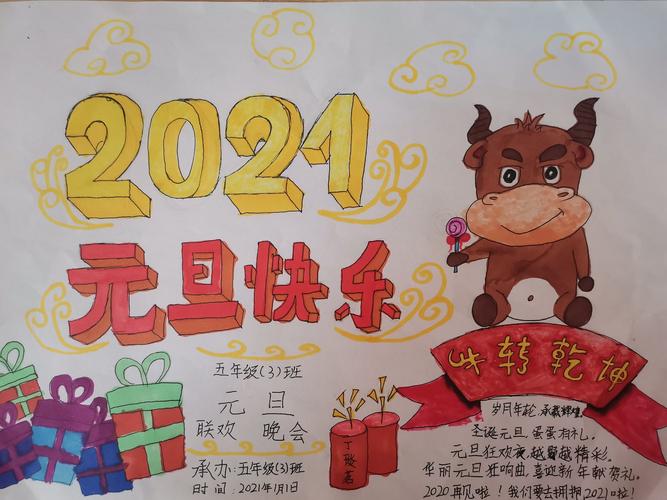 2021
元旦快乐
五年级(3)班
元旦
联欢 晚会
承办:五年级(3)班
时间:2021年1月1日
牛转乾坤
岁月年轮,承载辉煌
圣诞元旦,蛋蛋有礼。
元旦狂欢夜越 越精彩。
华丽元旦狂响曲,喜迎新年献贺礼。
2020再见啦!我们要去拥抱2021啦!